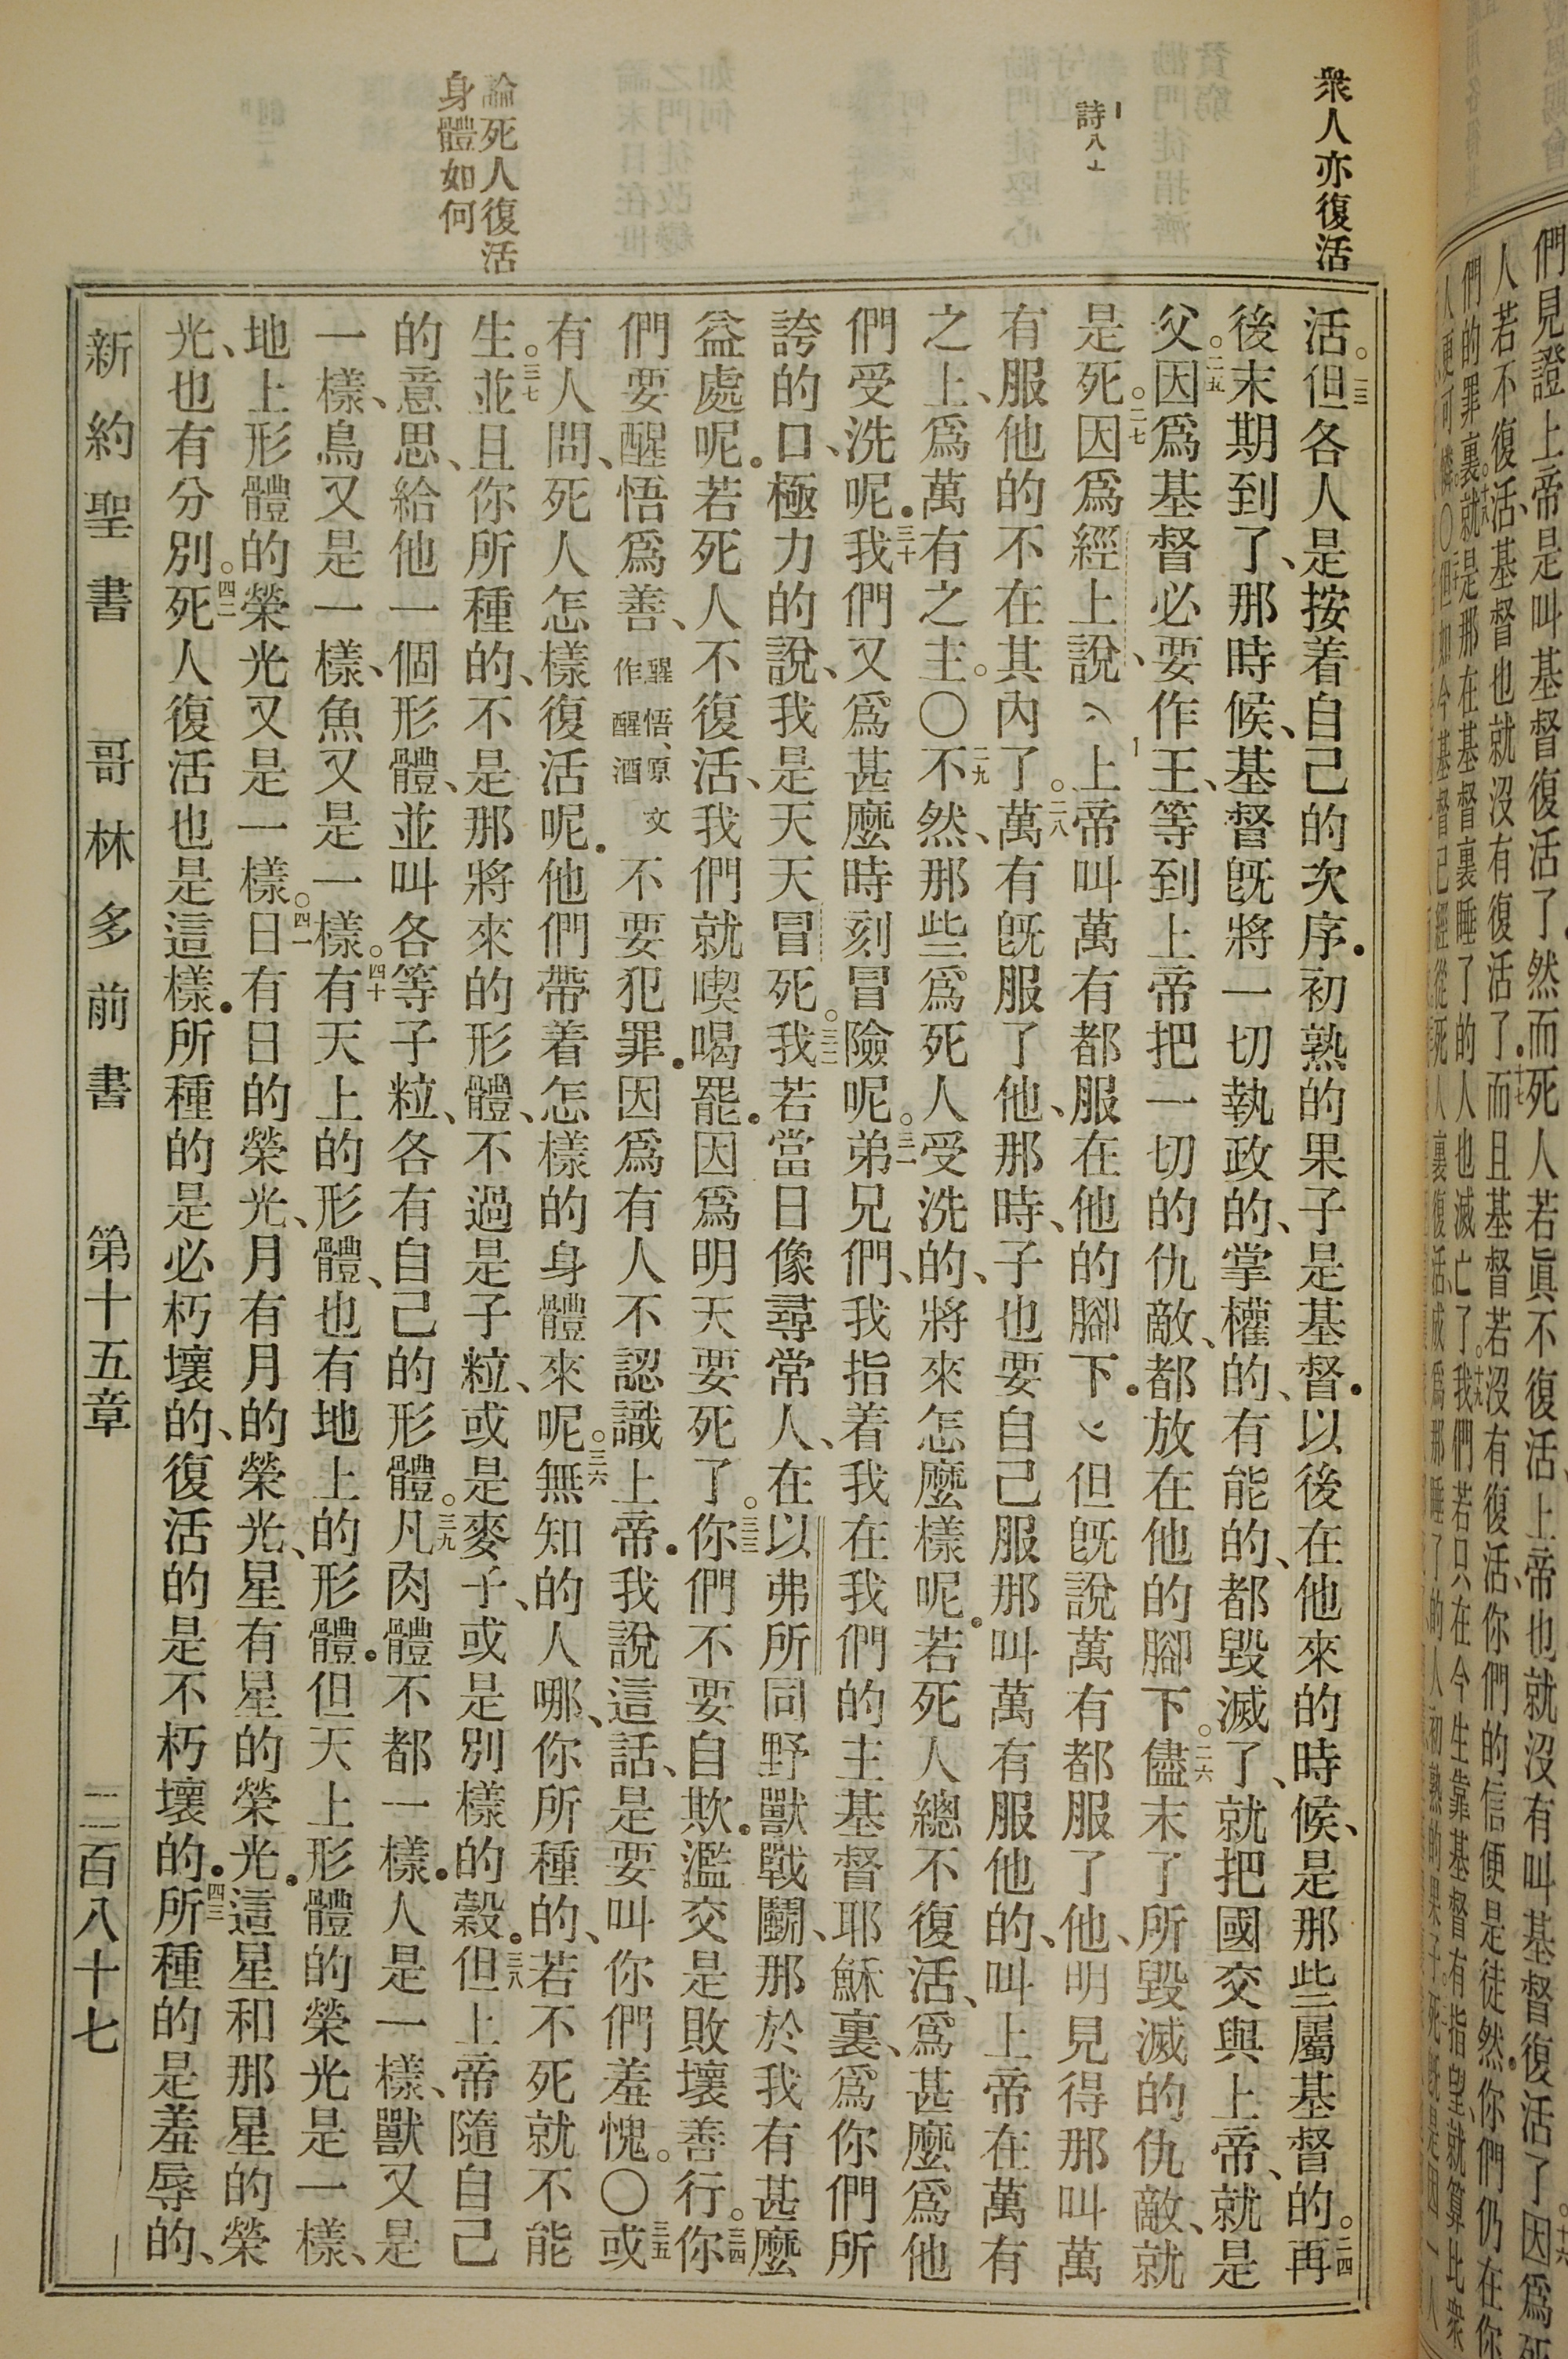 衆人亦復活
詩八
論死人復活
身體如何
活。二三但各人是按着自己的次序．初熟的果子是基督．以後在他來的時候、是那些屬基督的。二四再
後末期到了、那時候、基督旣將一切執政的、掌權的、有能的、都毀滅了、就把國交與上帝、就是
父。二五因爲基督必要作王、等到上帝把一切的仇敵、都放在他的腳下。二六儘末了所毀滅的仇敵、就
是死。二七因爲經上說、上帝叫萬有都服在他的腳下．但旣說萬有都服了他、明見得那叫萬
有服他的不在其內了。二八萬有旣服了他、那時、子也要自己服那叫萬有服他的、叫上帝在萬有
之上、爲萬有之主。〇二九不然、那些爲死人受洗的、將來怎麼樣呢．若死人總不復活、爲甚麼爲他
們受洗呢．三十我們又爲甚麼時刻冒險呢。三一弟兄們、我指着我在我們的主基督耶穌裏、爲你們所
誇的口、極力的說、我是天天冒死。三二我若當日像尋常人、在以弗所同野獸戰鬬、那於我有甚麼
益處呢．若死人不復活、我們就喫喝罷．因爲明天要死了。三三你們不要自欺．濫交是敗壞善行。三四你
們要醒悟爲善、醒悟、原文作醒酒不要犯罪．因爲有人不認識上帝．我說這話、是要叫你們羞愧。〇三五或
有人問、死人怎樣復活呢．他們帶着怎樣的身體來呢。三六無知的人哪、你所種的、若不死就不能
生。三七並且你所種的、不是那將來的形體、不過是子粒、或是麥子、或是別樣的穀。三八但上帝隨自己
的意思、給他一個形體、並叫各等子粒、各有自己的形體。三九凡肉體不都一樣．人是一樣、獸又是
一樣、鳥又是一樣、魚又是一樣。四十有天上的形體、也有地上的形體．但天上形體的榮光是一樣、
地上形體的榮光又是一樣。四一日有日的榮光、月有月的榮光、星有星的榮光．這星和那星的榮
光、也有分別。四二死人復活也是這樣．所種的是必朽壞的、復活的是不朽壞的．四三所種的是羞辱的、
新約聖書　哥林多前書　第十五章　二百八十七